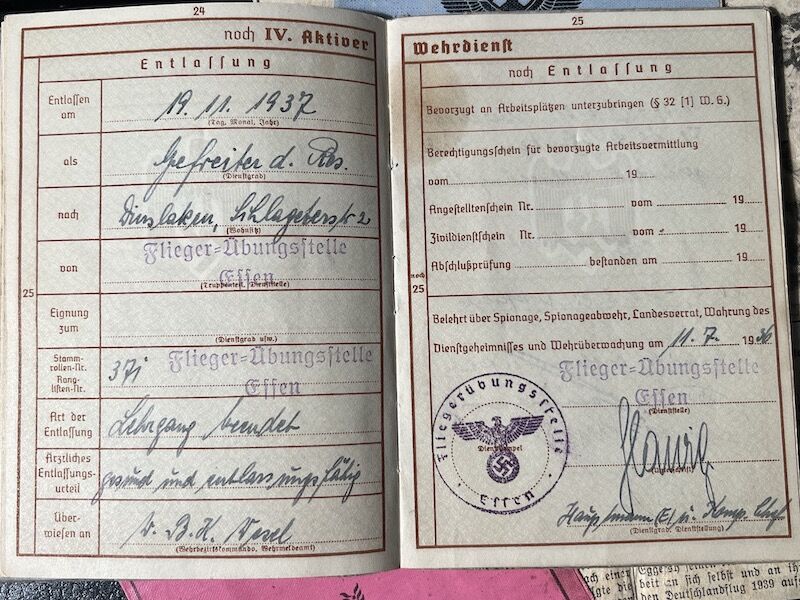 24
noch IV. Aktiver
Entlassung
Entlassen am
19. 11. 1937
(Tag, Monat, Jahr)
als
Gefreiter d. Res.
(Dienstgrad)
nach
Dinslaken, Schlageterstr 2
(Wohnsitz)
von
Flieger=Übungsstelle
Essen
(Truppenteil, Dienststelle)
25
Eignung zum
(Dienstgrad usw.)
Stamm-
rollen-Nr.
Rang-
listen-Nr.
37i
Flieger=Übungsstelle
Essen
Art der
Entlassung
Lehrgang beendet
Ärztliches
Entlassungs-
urteil
gesund und entlassungsfähig
Über-
wiesen an
W. B. K. Wesel
(Wehrbezirkskommando, Wehrmeldeamt)
25
Wehrdienst
noch Entlassung
Bevorzugt an Arbeitsplätzen unterzubringen (§ 32 [1] W. G.)
Berechtigungsschein für bevorzugte Arbeitsvermittlung
vom 19
Angestelltenschein Nr. vom 19
Zivildienstschein Nr. vom 19
Abschlußprüfung bestanden am 19
noch
25
Belehrt über Spionage, Spionageabwehr, Landesverrat, Wahrung des
Dienstgeheimnisses und Wehrüberwachung am 11. 7. 1936
Flieger=Übungsstelle
Essen
(Dienststelle)
Fliegerübungsstelle
Essen
Dienststempel
Hauptmann (E) u. Komp. Chef
(Dienstgrad, Dienststellung)
ach einer
beit an sich selbst und an ih
den Deutschlandflug 1939 auf